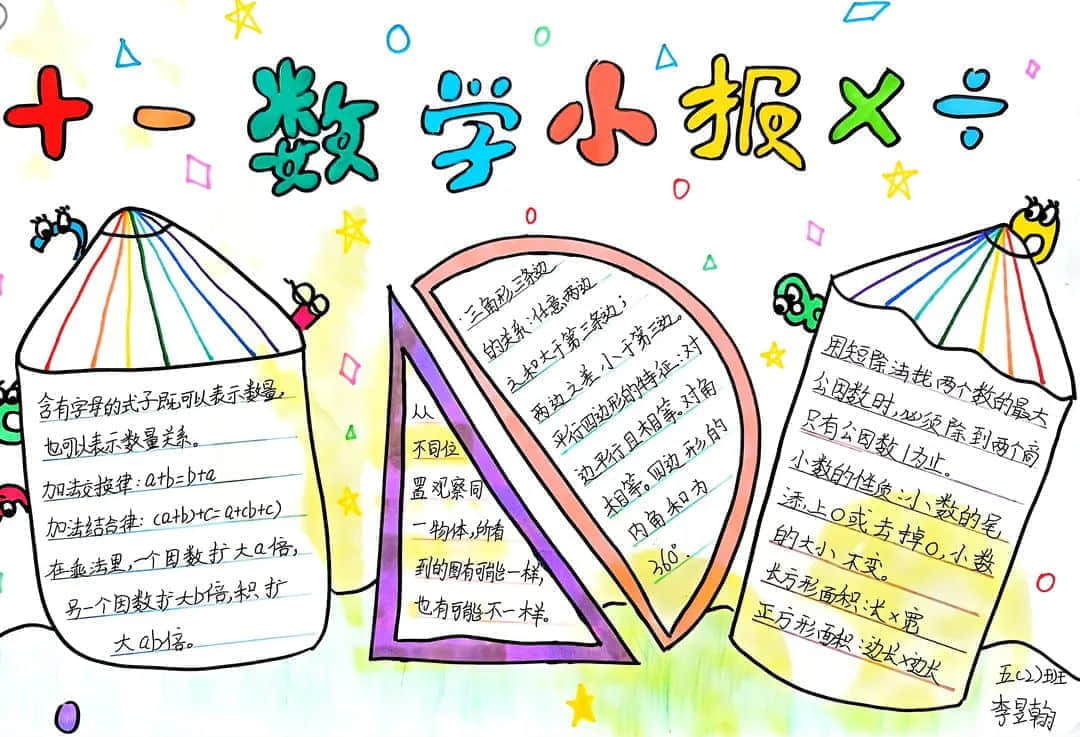 + - 数学小报 × ÷
含有字母的式子既可以表示数量,
也可以表示数量关系。
加法交换律:a+b=b+a
加法结合律:(a+b)+c=a+(b+c)
在乘法里,一个因数扩大a倍,
另一个因数扩大b倍,积扩
大ab倍。
从
不同位
置观察同
一物体,所看
到的图有可能一样,
也有可能不一样。
:三角形三条边
的关系:任意两边
之和大于第三条边;
两边之差小于第三边。
平行四边形的特征:对
边平行且相等。对角
相等。四边形的
内角和为
360°.
用短除法找两个数的最大
公因数时,必须除到两个商
只有公因数1为止。
小数的性质:小数的尾
添上0或去掉0,小数
的大小不变。
长方形面积:长×宽
正方形面积:边长×边长
五(2)班
李昱翰